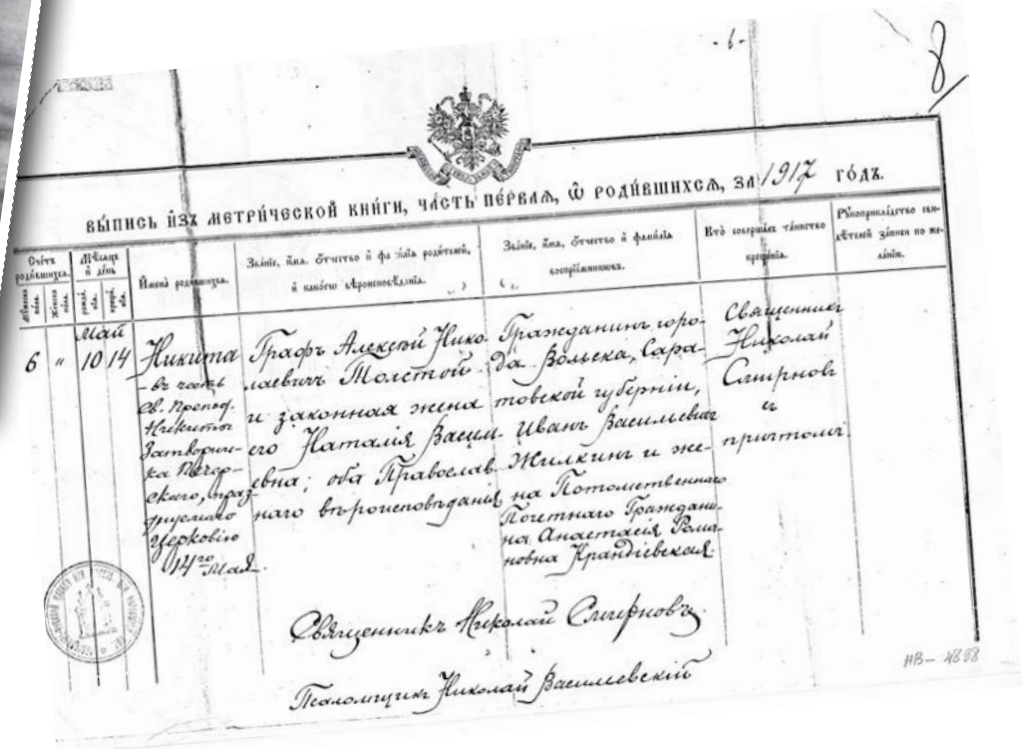 - 6 -
8
ВЫ́ПИСЬ И҆ЗЪ МЕТРИ́ЧЕСКОЙ КНИ́ГИ, ЧА́СТЬ ПЕ́РВАѦ, Ѽ РОДИ́ВШИХСѦ, ЗА 1917 ГО́ДЪ.
Сче́тъ роди́вшихсѧ.
Мꙋ́жеска по́ла.
Же́нска по́ла.
Мѣ́сѧцъ и҆ де́нь
рожде́нїѧ.
креще́нїѧ.
И҆мена̀ роди́вшихсѧ.
Зва́нїе, и҆́мѧ, ѻ҆́тчество и҆ фами́лїѧ роди́телей,
и҆ како́гѡ вѣроисповѣ́данїѧ.
Зва́нїе, и҆́мѧ, ѻ҆́тчество и҆ фами́лїѧ
воспрїе́мникѡвъ.
Кто̀ соверша́лъ та́инство
креще́нїѧ.
Рꙋкоприкла́дство сви-
дѣ́телей за́писи по же-
ла́нїю.
Май
6 " 10 14
Никита
- въ честь
Св. Препод.
Никиты
Затворни-
ка Печер-
скаго, праз-
днуемаго
Церковію
14го Мая.
Графъ Алексѣй Нико-
лаевичъ Толстой
и законная жена
его Наталія Васи-
льевна; оба Православ-
наго вѣроисповѣданія
Гражданинъ горо-
да Вольска, Сара-
товской губерніи,
Иванъ Васильевичъ
Жилкинъ и же-
на Потомственнаго
Почетнаго Граждани-
на Анастасія Рома-
новна Крандіевская.
Священникъ
Николай
Смирновъ
съ
причтомъ
Священникъ Николай Смирновъ.
Псаломщикъ Николай Василевскій
НВ- 4888